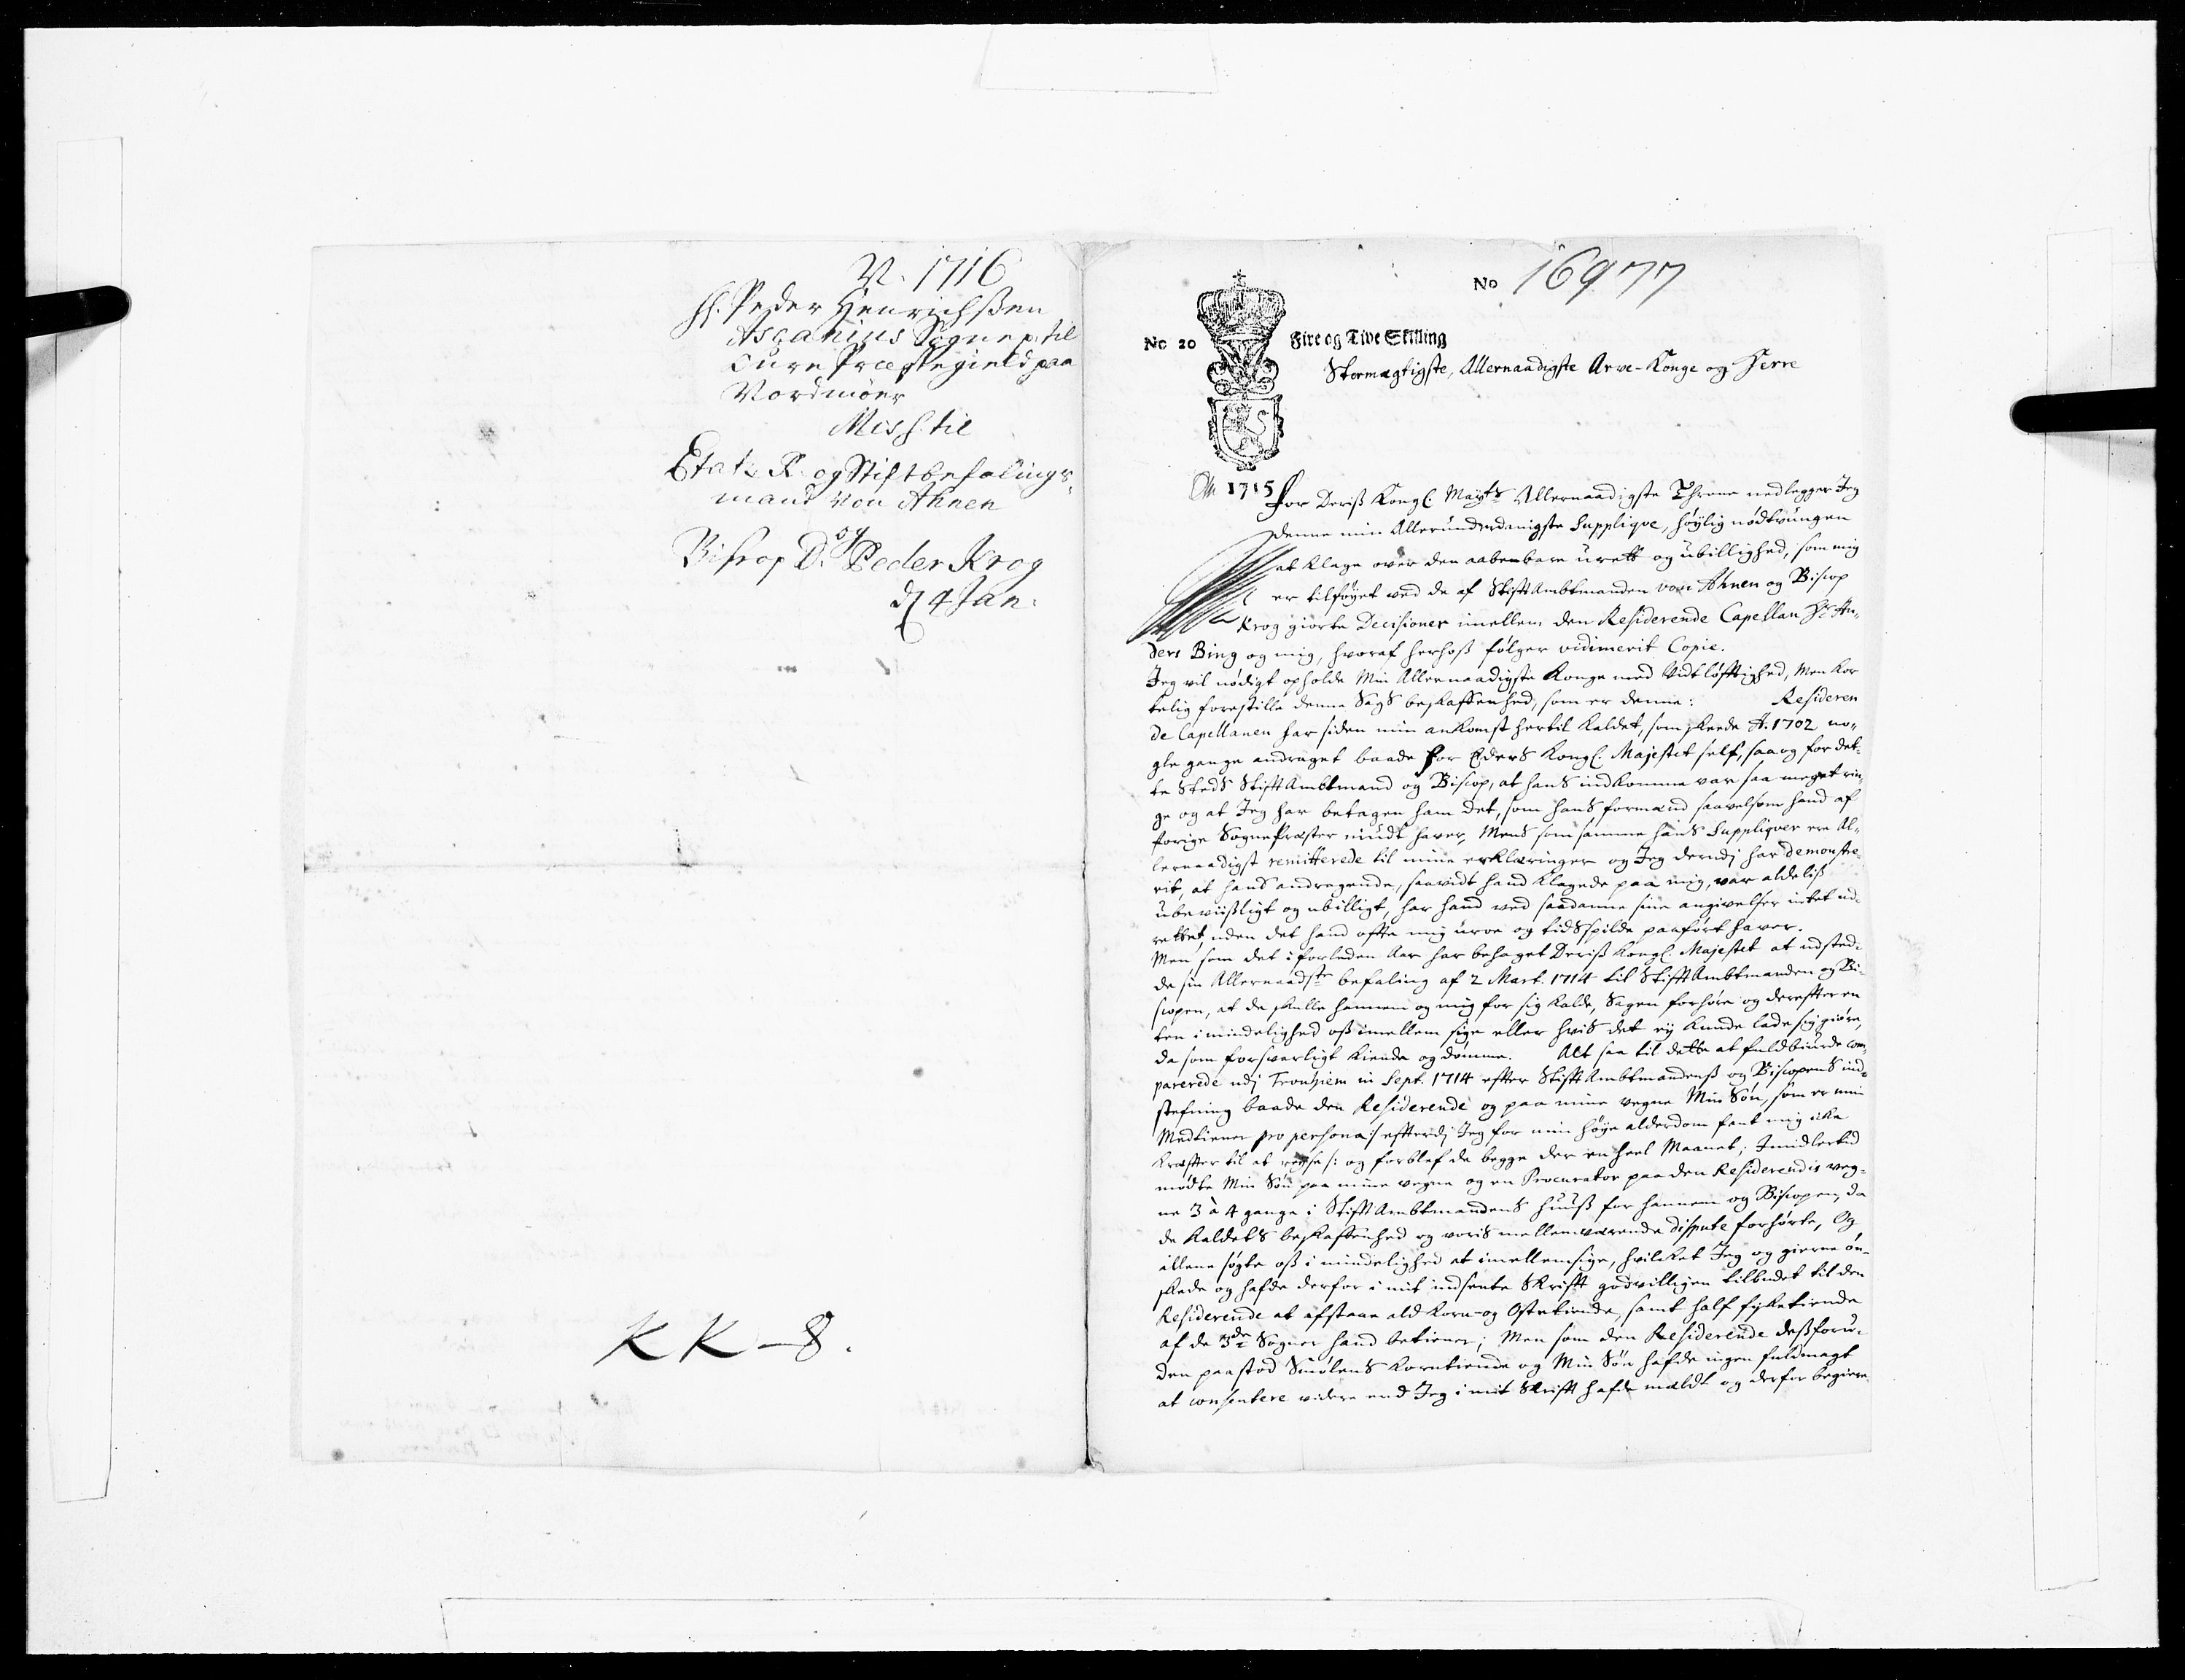 N. 1716
H. Peder Henrichsen
Ascanius Sognep: til
Cure Præstegield paa
Nordmöer
Miss. til
Etats R. og Stiftbefalings-
mand Von Ahnen
og
Biscop D. Peder Krog
d 4 Jan:
KK-8.
No 16977
No 20 Fire og Tive Skilling
Stormægtigste, Allernaadigste Arve-Konge og Herre
Ao 1715
For Deriß Kongl: Mayts Allernaadigste Throne nedlegger Jeg
denne min Allerunderdanigste Supplique, høylig nødtrungen
at klage over den aabenbare urett og ubillighed, som mig
er tilføyet ved de af StifftAmbtmanden von Ahnen og Biscop
Krog giorte Decisioner imellem den Residerende Capellan Hr An-
ders Bing og mig, hvoraf herhoß følger vidimerit Copie.
Jeg vil nødigt opholde Min Allernaadigste Konge med Vidtløfftighed, Men kor
telig forestille denne Sags beskaffenhed, som er denne: Resideren
de Capellanen har siden min ankomst hertil kaldet, som skeede Ao. 1702 no-
gle gange andraget baade for Eders Kongl: Majestet self, saa og for det-
te Steds StifftAmbtmand og Biscop, at hans indkomme var saa meget rin-
ge og at Jeg har betagen ham det, som hans formænd saavelsom hand af
forige SognePræster niudt haver, Mens som samme hans Suppliqver ere Al-
lernaadigst remitterede til mine erklæringer og Jeg derudj har demonstre-
rit, at hans andragende, saavidt hand klagede paa mig, var aldeliß
ubeviißligt og ubilligt, har hand ved saadanne sine angivelser intet ud-
rettet, uden det hand offte mig uroe og tidsspilde paaført haver.
Men som det i forleden Aar har behaget Deriß Kongl: Majestet at udsted-
de sin Allernaadste befaling af 2 Mart. 1714 til StifftAmbtmanden og Bi-
scopen, at de skulle hannem og mig for sig kalde, Sagen forhøre og derefter en
ten i mindelighed oß imellem sige eller hvis det ey kunde lade sig giøre,
da som forsvarligt kiende og dømme. Alt saa til dette at fuldbiurde com-
parerede udj Tronhiem in Sept. 1714 efter StifftAmbtmandenß og Biscopens ind-
stefning baade den Residerende og paa mine vegne Min Søn, som er min
Medtiener pro persona :/ efterdj Jeg for min høye alderdom fant mig icke
kræffter til at reyse /: og forblef de begge der en heel Maanet; Imidlertid
mødte Min Søn paa mine vegne og en Procurator paa den Residerendis veg-
ne 3 à 4 gange i StifftAmbtmandens Huuß for hannem og Biscopen, da
de kaldets beskaffenhed og voris mellemværende dispute forhørte, Og
allene søgte oß i mindelighed at imellemsige, hvilket Jeg og gierne øn-
skede og hafde derfor i mit indsente Skrifft godvilligen tilbudet til den
Residerende at afstaae ald korn- og Ostetiende, samt half fisketiende
af de 3de Sogner hand betiener; Men som den Residerende deßforu-
den paastod Smølens Korntiende og Min Søn hafde ingen fuldmagt
at consentere videre end Jeg i mit Skrifft hafde meldt og derfor begiere-